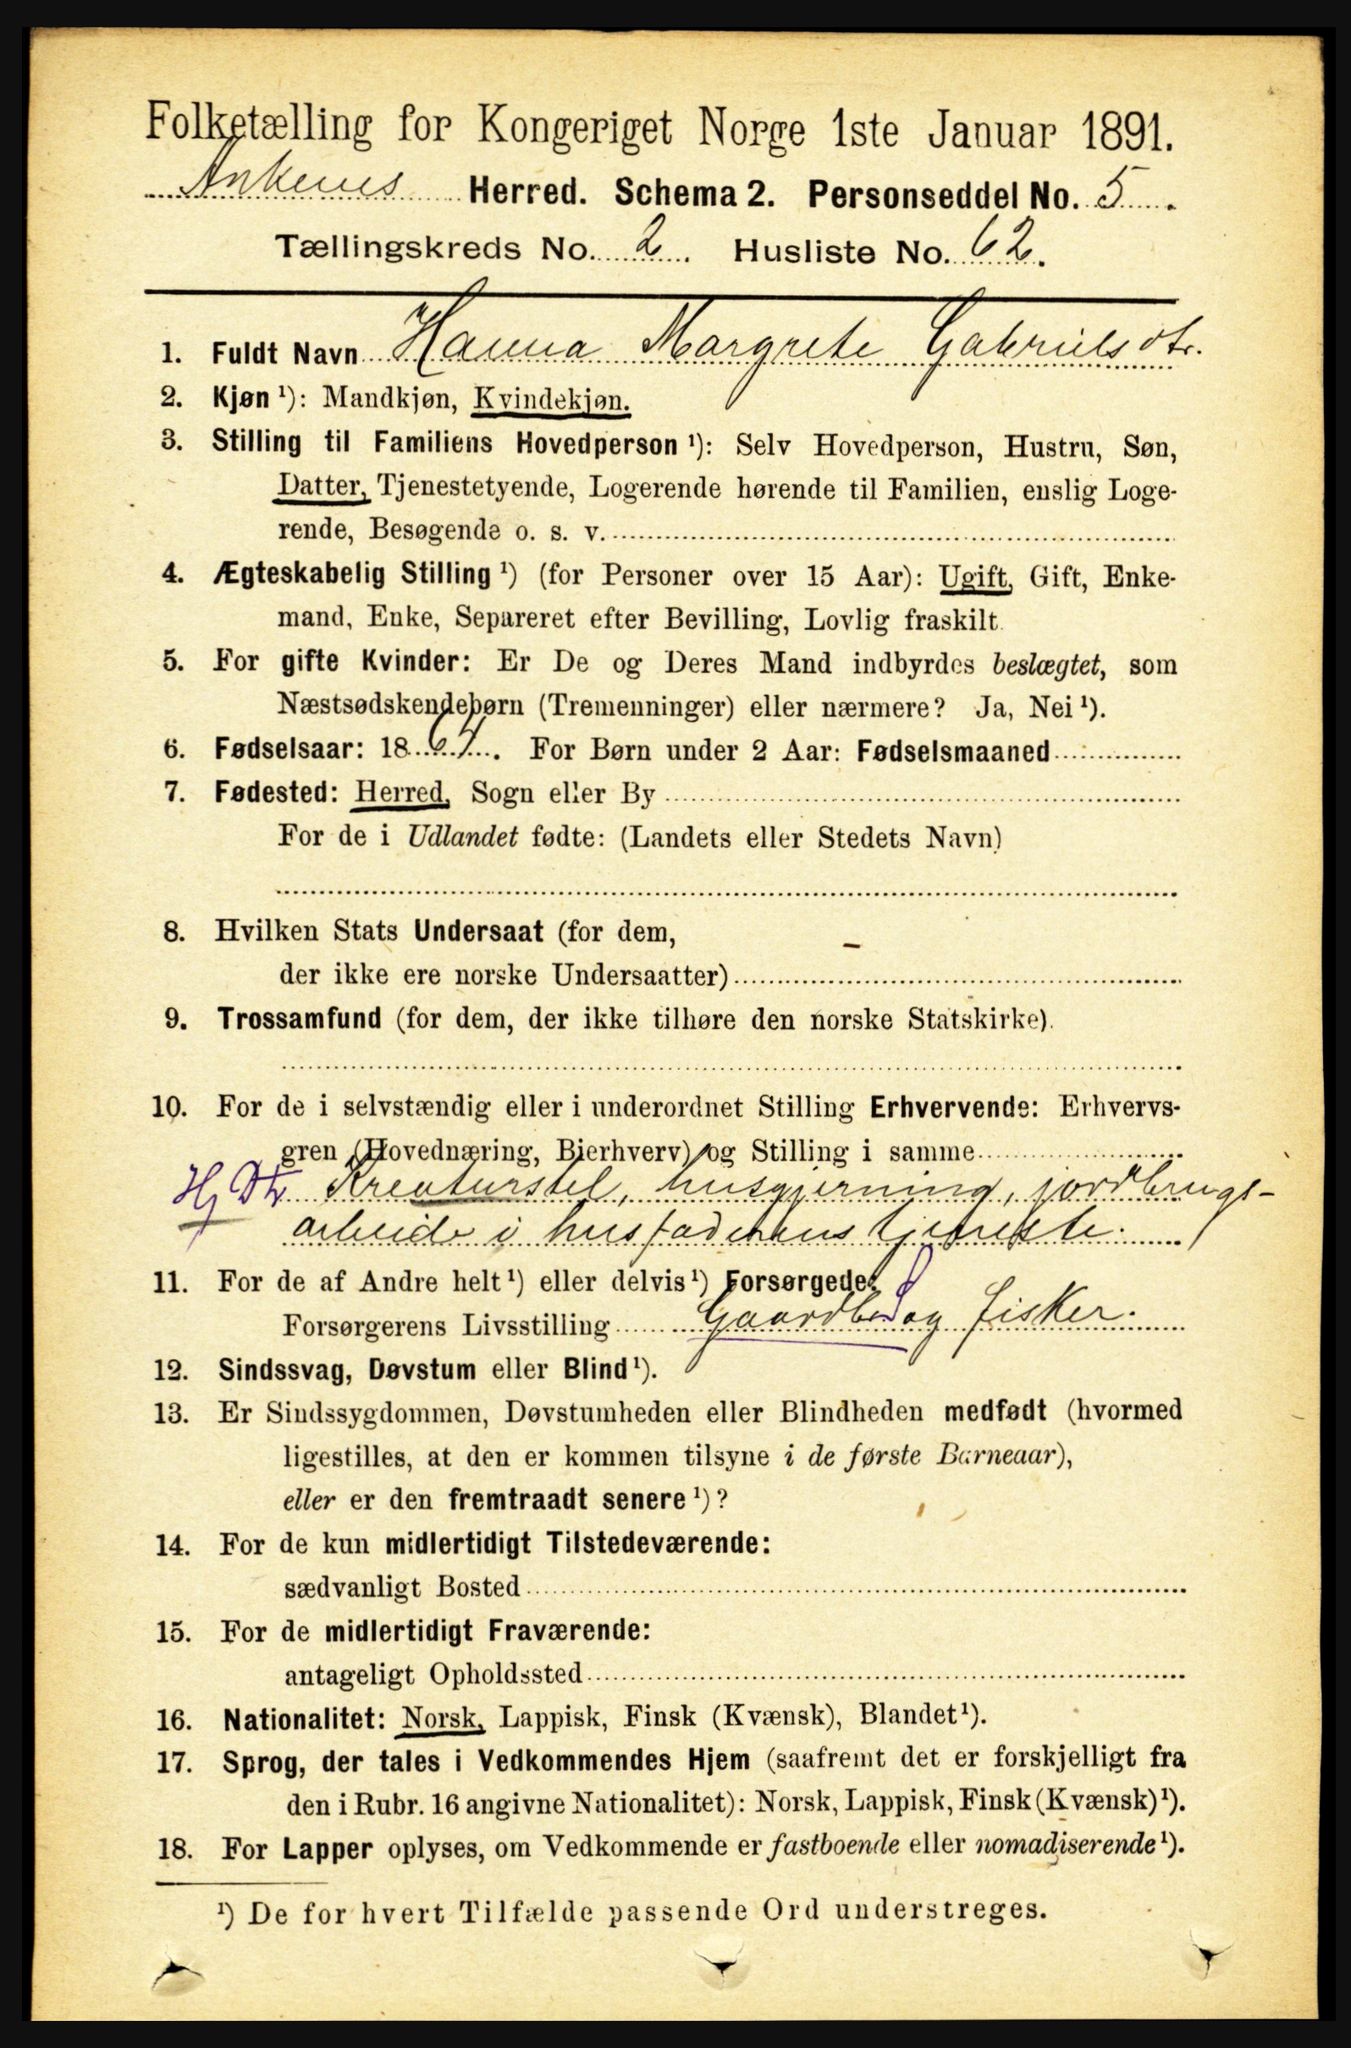 Folketælling for Kongeriget Norge 1ste Januar 1891.
Ankenes Herred. Schema 2. Personseddel No. 5.
Tællingskreds No. 2. Husliste No. 62.
1. Fuldt Navn Hanna Margrete Gabrielsdtr.
2. Kjøn ¹): Mandkjøn, Kvindekjøn.
3. Stilling til Familiens Hovedperson ¹): Selv Hovedperson, Hustru, Søn,
Datter, Tjenestetyende, Logerende hørende til Familien, enslig Loge-
rende, Besøgende o. s. v.
4. Ægteskabelig Stilling ¹) (for Personer over 15 Aar): Ugift, Gift, Enke-
mand, Enke, Separeret efter Bevilling, Lovlig fraskilt.
5. For gifte Kvinder: Er De og Deres Mand indbyrdes beslægtet, som
Næstsødskendebørn (Tremenninger) eller nærmere? Ja, Nei ¹).
6. Fødselsaar: 1864. For Børn under 2 Aar: Fødselsmaaned
7. Fødested: Herred, Sogn eller By
For de i Udlandet fødte: (Landets eller Stedets Navn)
8. Hvilken Stats Undersaat (for dem,
der ikke ere norske Undersaatter) –
9. Trossamfund (for dem, der ikke tilhøre den norske Statskirke).
10. For de i selvstændig eller i underordnet Stilling Erhvervende: Erhvervs-
gren (Hovednæring, Bierhverv) og Stilling i samme
Hj Dtr Kreaturstel, husgjerning, jordbrugs-
arbeide i husfaderens tjeneste.
11. For de af Andre helt ¹) eller delvis ¹) Forsørgede:
Forsørgerens Livsstilling Gaardbr og fisker.
12. Sindssvag, Døvstum eller Blind ¹).
13. Er Sindssygdommen, Døvstumheden eller Blindheden medfødt (hvormed
ligestilles, at den er kommen tilsyne i de første Barneaar),
eller er den fremtraadt senere ¹)?
14. For de kun midlertidigt Tilstedeværende:
sædvanligt Bosted
15. For de midlertidigt Fraværende:
antageligt Opholdssted
16. Nationalitet: Norsk, Lappisk, Finsk (Kvænsk), Blandet ¹).
17. Sprog, der tales i Vedkommendes Hjem (saafremt det er forskjelligt fra
den i Rubr. 16 angivne Nationalitet): Norsk, Lappisk, Finsk (Kvænsk) ¹).
18. For Lapper oplyses, om Vedkommende er fastboende eller nomadiserende ¹).
¹) De for hvert Tilfælde passende Ord understreges.